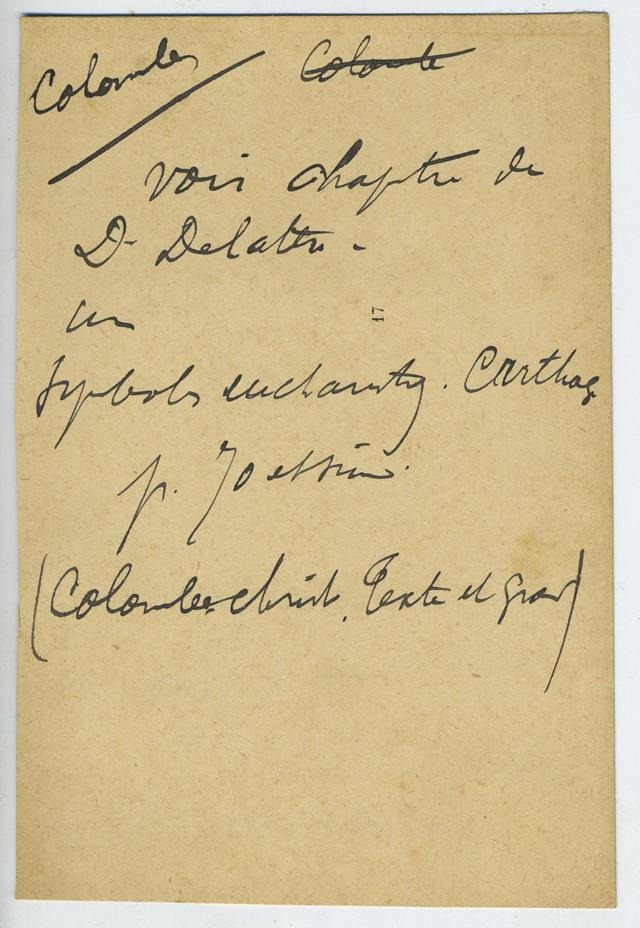 Colombe Colombe
voir chapitre de
D. Delattre -
in
17
Symboles eucharistiq. Carthage
p. 70 et suiv.
(Colombe-christ. Texte et grav)